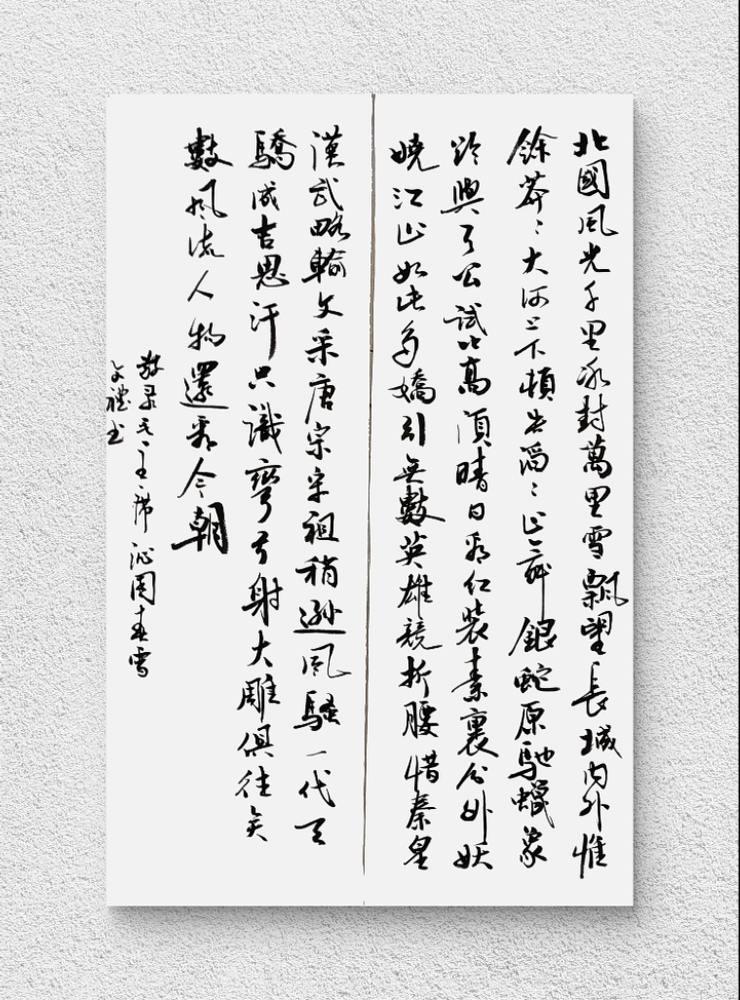 北國風光千里冰封萬里雪飄望長城內外惟
餘莽々大河上下頓失滔々山舞銀蛇原馳蠟象
欲與天公試比高須晴日看紅裝素裹分外妖
嬈江山如此多嬌引無數英雄競折腰惜秦皇
漢武略輸文采唐宗宋祖稍遜風騷一代天
驕成吉思汗只識彎弓射大雕俱往矣
數風流人物還看今朝
敬录毛主席沁園春雪
文禮书